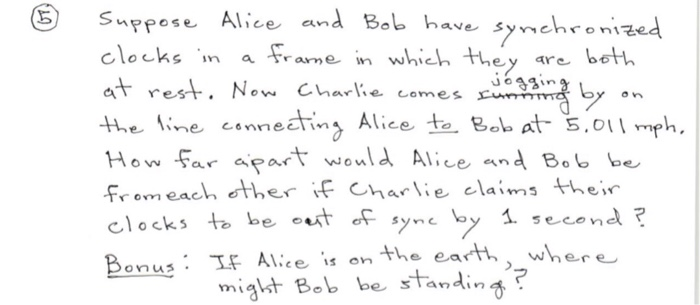 ⑤ Suppose Alice and Bob have synchronized
clocks in a frame in which they are both
at rest. Now Charlie comes jogging by on
the line connecting Alice to Bob at 5.011 mph.
How far apart would Alice and Bob be
from each other if Charlie claims their
clocks to be out of sync by 1 second?
Bonus: If Alice is on the earth, where
might Bob be standing?